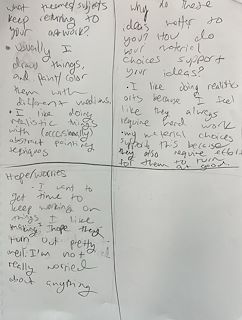 what themes/subjects
keep recurring to
your artwork?
• Usually I
draw things,
and paint/color
them with
different mediums.
• I like doing
realistic things
with (occasionally)
abstract painting
techniques
why do these
ideas matter to
you? How do
your material
choices support
your ideas?
• I like doing realistic
arts because I feel
like they always
require hard work
• my material choices
support this because
they also require effort
for them to
Hope/worries
• I want to
get time to
keep working on
things I like
making, I hope they
turn out pretty
well. I'm not
really worried
about anything